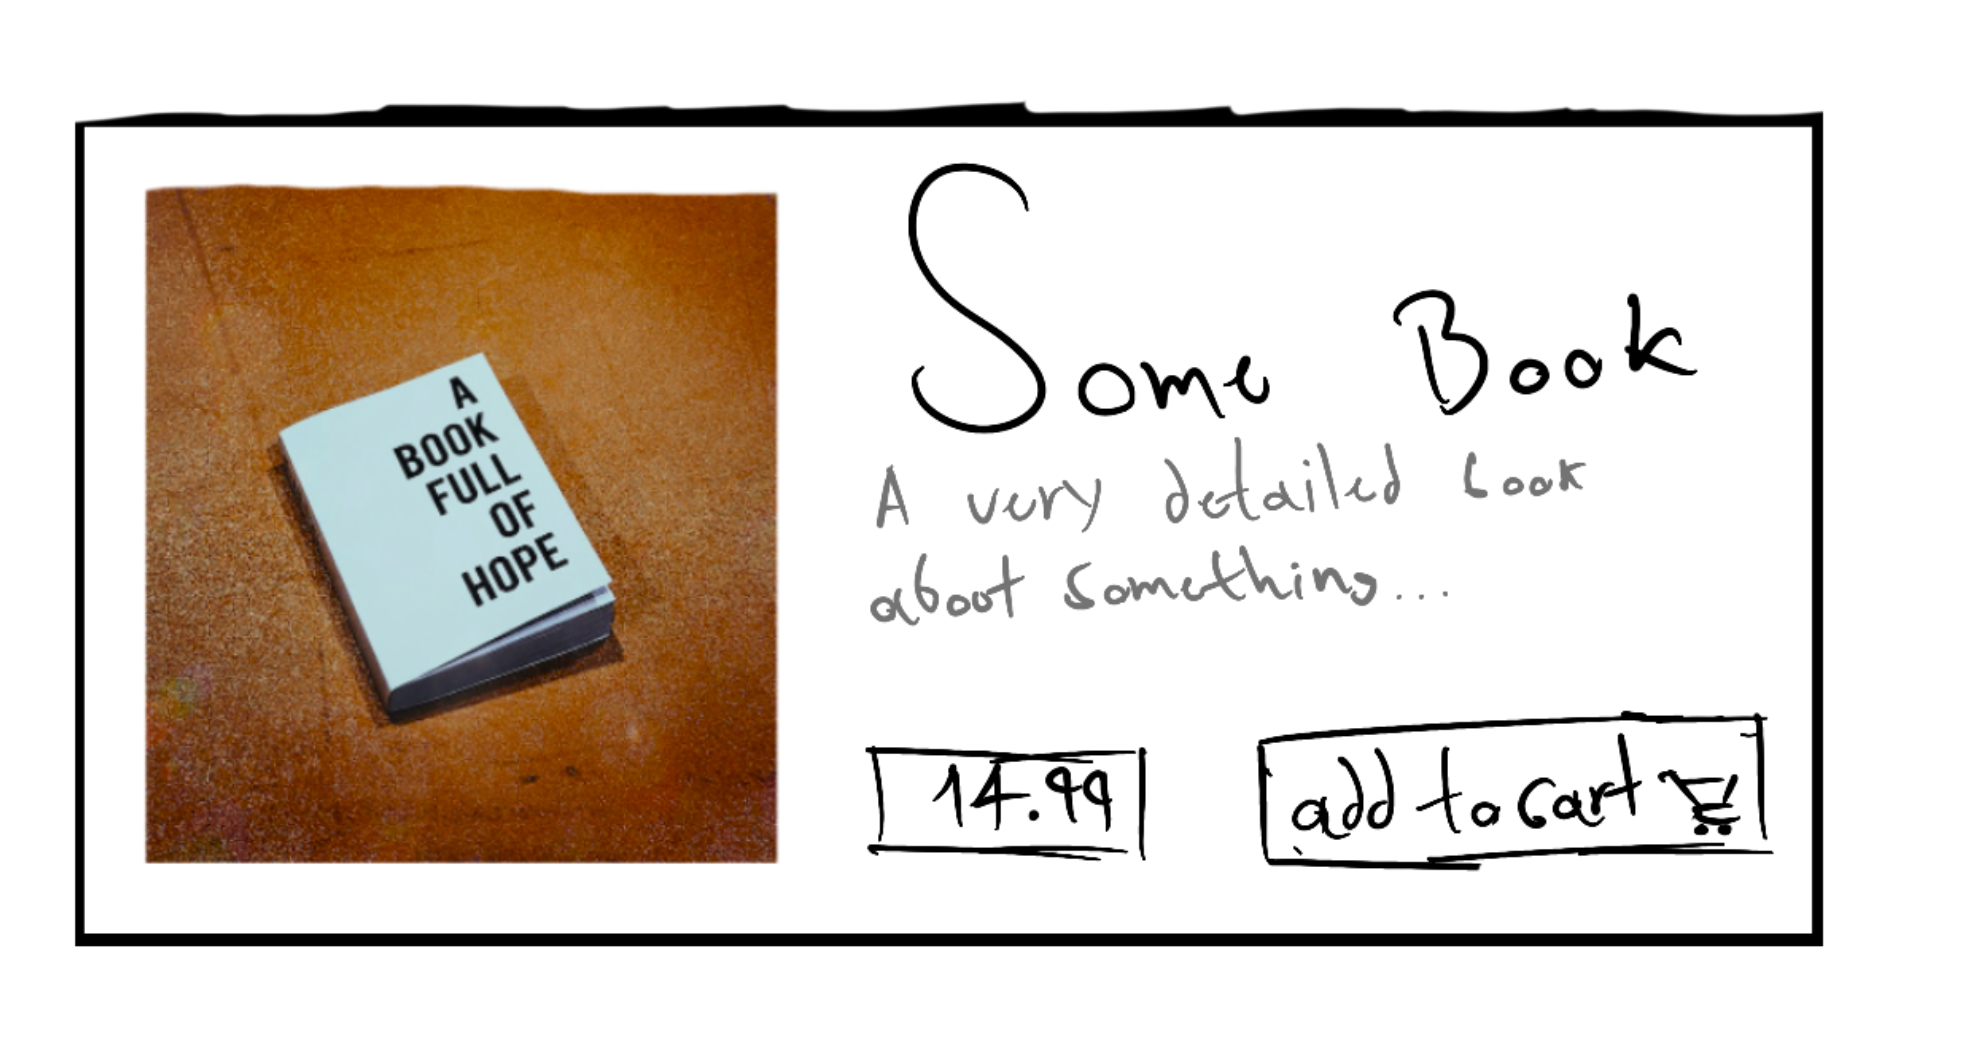 A
BOOK
FULL
OF
HOPE
Some Book
A very detailed look
about something...
14.99
add to cart